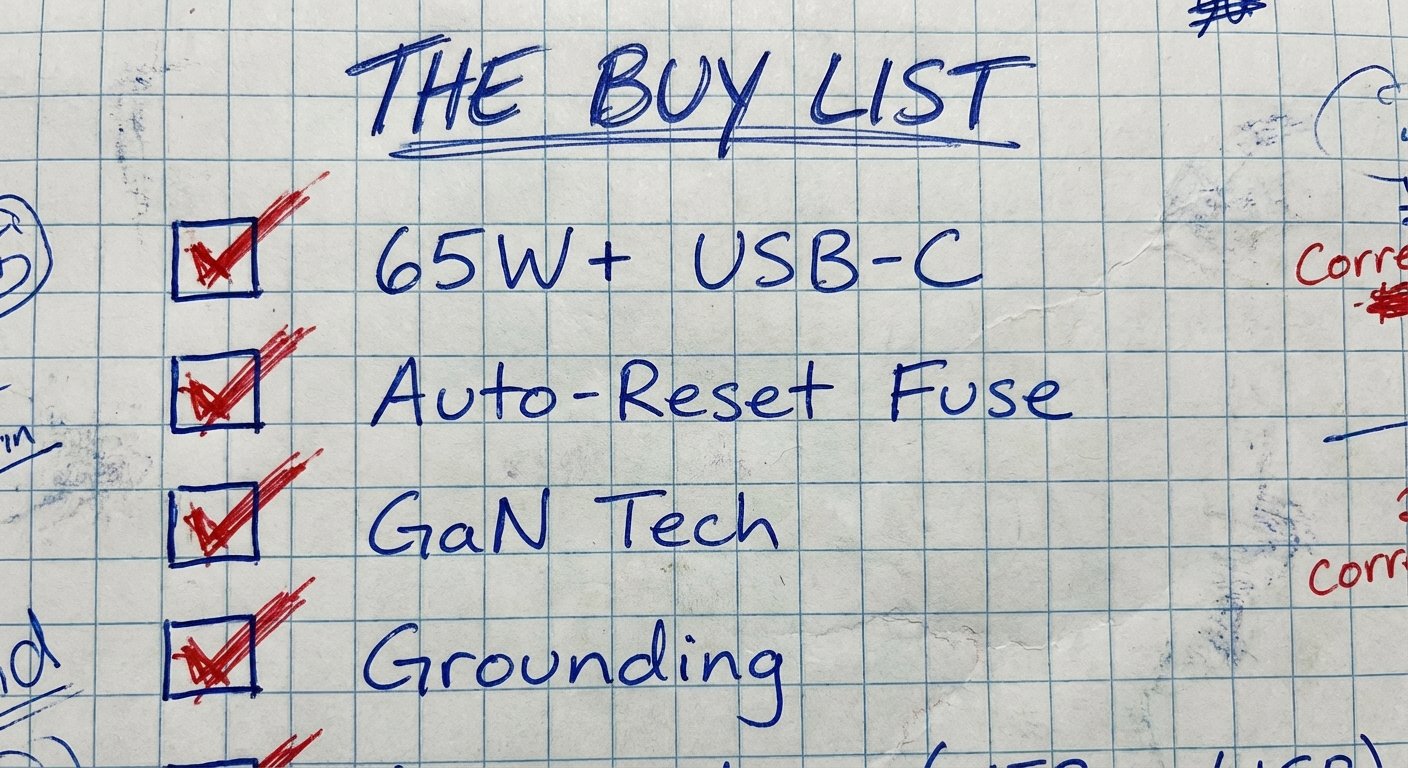 THE BUY LIST
65W+ USB-C
Auto-Reset Fuse
GaN Tech
Grounding